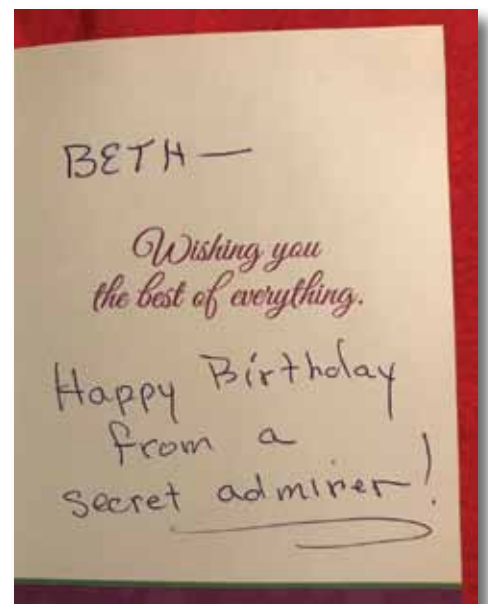 BETH—
Wishing you
the best of everything.
Happy Birthday
from a
secret admirer!